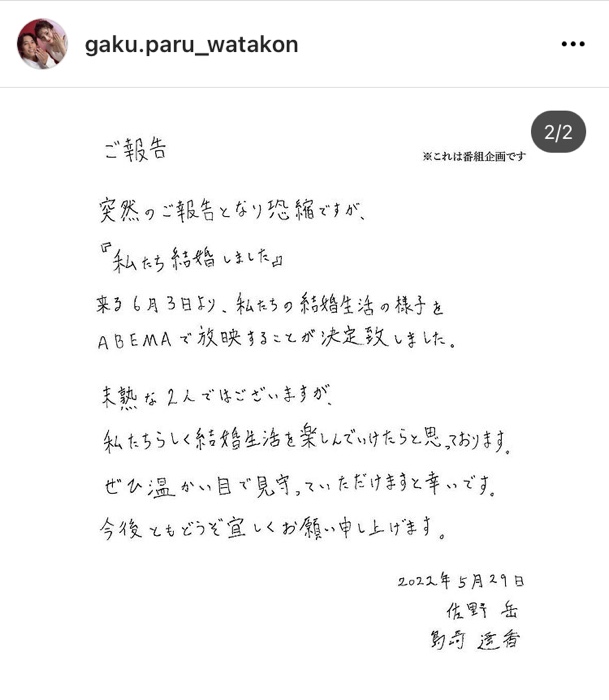 gaku.paru_watakon
2/2
ご報告
※これは番組企画です
突然のご報告となり恐縮ですが、
『私たち結婚しました』
来る6月3日より、私たちの結婚生活の様子を
ABEMAで放映することが決定致しました。
未熟な2人ではございますが、
私たちらしく結婚生活を楽しんでいけたらと思っております。
ぜひ温かい目で見守っていただけますと幸いです。
今後ともどうぞ宜しくお願い申し上げます。
2022年5月29日
佐野 岳
島崎 遥香